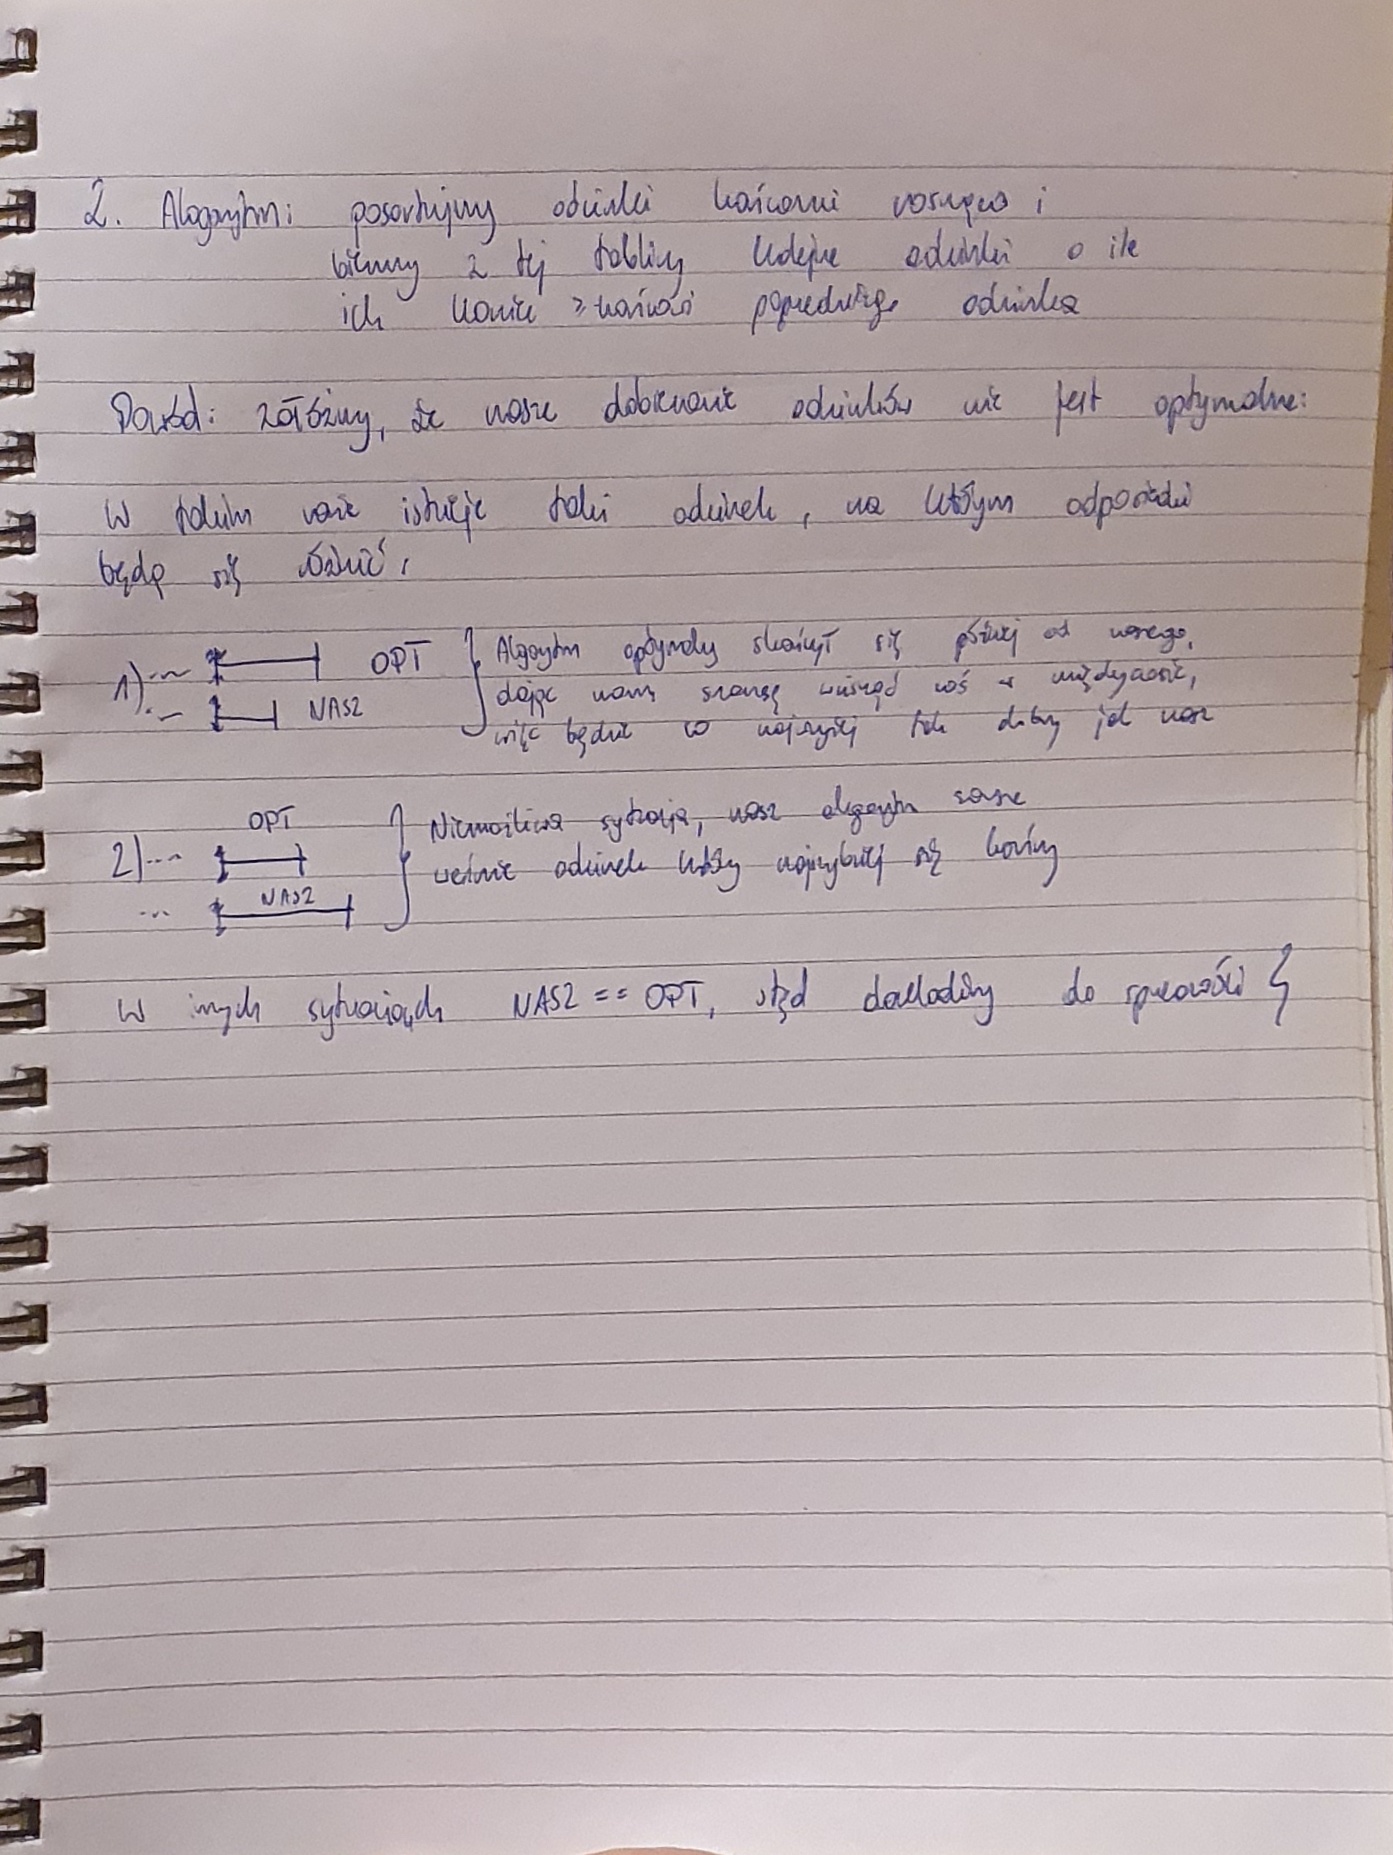 2. Alogorytm: posortujmy odcinki końcami rosnąco i
bierzmy z tej tablicy kolejne odcinki o ile
ich koniec ≥ końcowi poprzedniego odcinka
Dowód: załóżmy, że nasze dobieranie odcinków nie jest optymalne:
W takim razie istnieje taki odcinek, na którym odpowiedzi
będą się różnić.
1) ... OPT Algorytm optymalny skończył się później od naszego,
... NASZ dając nam szansę wcisnąć coś w międzyczasie,
więc będzie co najwyżej tak dobry jak nasz
OPT
2) ... Niemożliwa sytuacja, nasz algorytm zawsze
... NASZ weźmie odcinek który najszybciej się kończy
W innych sytuacjach NASZ == OPT, stąd dochodzimy do sprzeczności